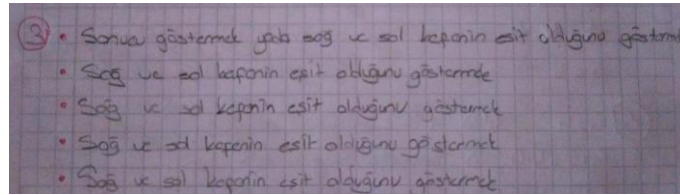 3 • Sonucu göstermek yada sağ ve sol kefenin eşit olduğunu gösterm
• Sağ ve sol kefenin eşit olduğunu göstermde
• Sağ ve sol kefenin eşit olduğunu göstermek
• Sağ ve sol kefenin eşit olduğunu göstermek
• Sağ ve sol kefenin eşit olduğunu göstermek